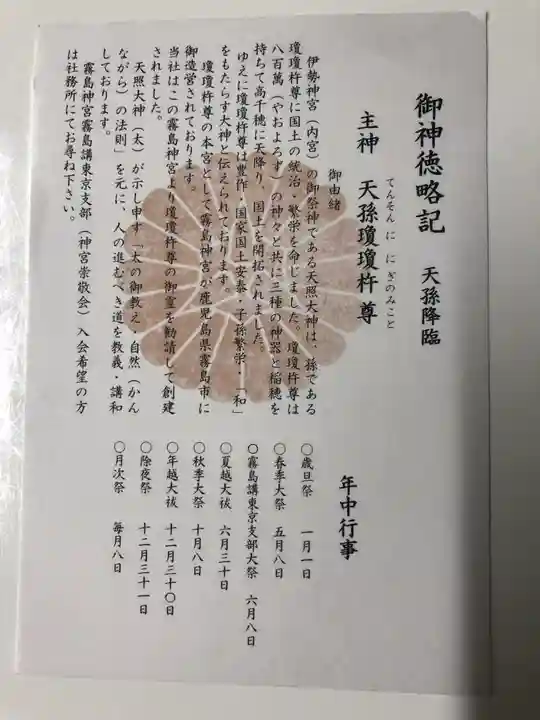 御神徳略記 天孫降臨
主神 天孫瓊瓊杵尊
てんそん に にぎのみこと
御由緒
伊勢神宮(内宮)の御祭神である天照大神は、孫である
瓊瓊杵尊に国土の統治・繁栄を命じました。瓊瓊杵尊は
八百萬(やおよろず)の神々と共に三種の神器と稲穂を
持ちて高千穂に天降り、国土を開拓されました。
ゆえに瓊瓊杵尊は豊作・国家国土安泰・子孫繁栄・「和」
をもたらす大神と伝えられております。
瓊瓊杵尊の本宮として霧島神宮が鹿児島県霧島市に
御造営されております。
当社はこの霧島神宮より瓊瓊杵尊の御霊を勧請して創建
されました。
天照大神(太)が示し申す「太の御教え・自然(かん
ながら)の法則」を元に、人の進むべき道を教義・講和
しております。
霧島神宮霧島講東京支部(神宮崇敬会)入会希望の方
は社務所にてお尋ね下さい。
年中行事
〇歳旦祭 一月一日
〇春季大祭 五月八日
〇霧島講東京支部大祭 六月八日
〇夏越大祓 六月三十日
〇秋季大祭 十月八日
〇年越大祓 十二月三十〇日
〇除夜祭 十二月三十一日
〇月次祭 毎月八日